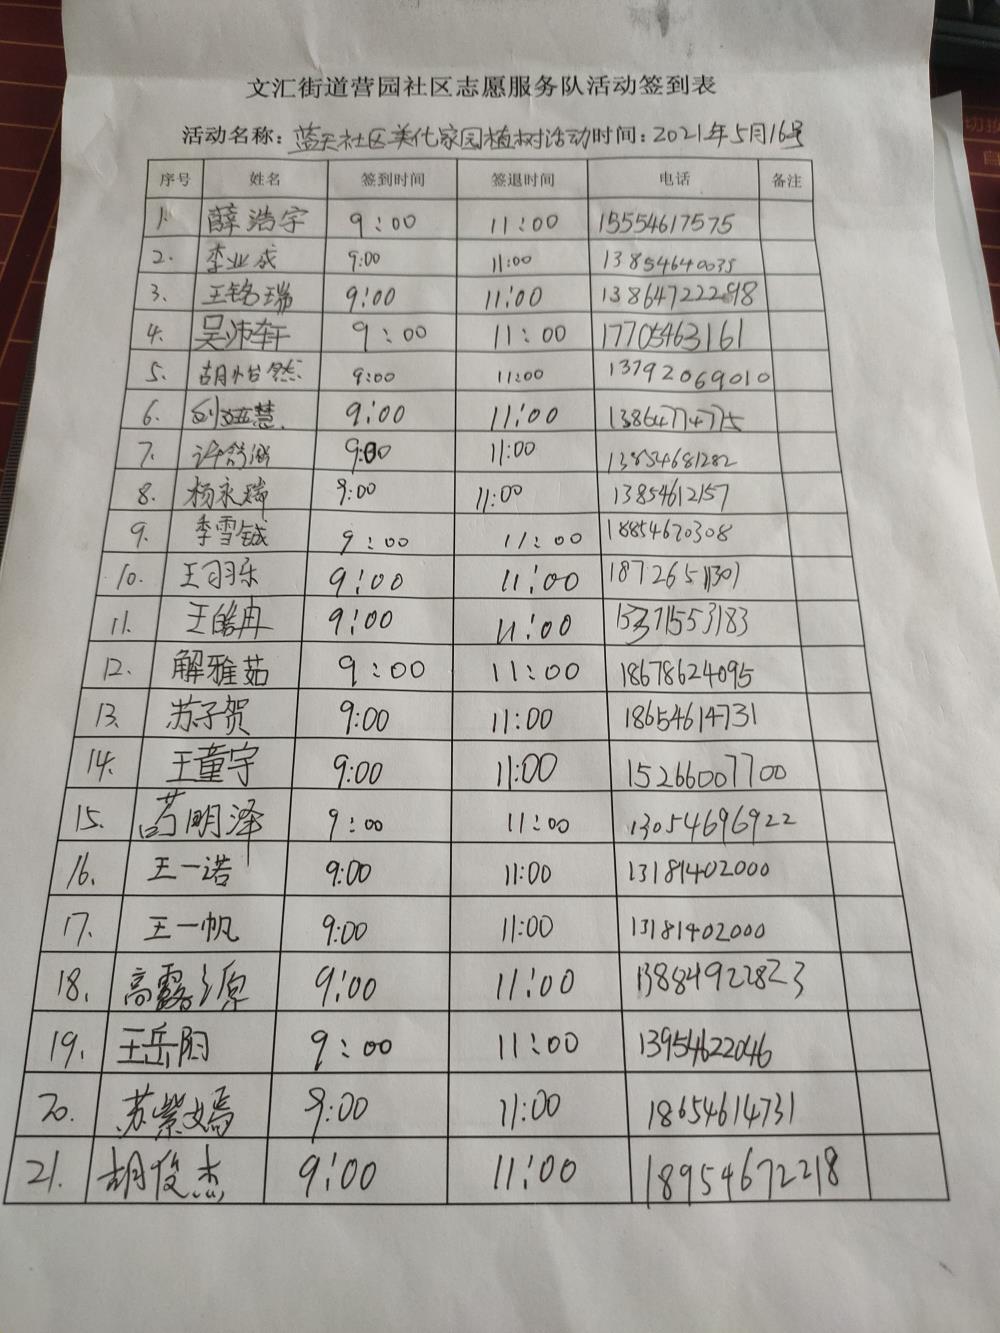 文汇街道营园社区志愿服务队活动签到表
活动名称：蓝天社区美化家园植树活动时间：2021年5月16号
序号 姓名 签到时间 签退时间 电话 备注
1. 薛浩宇 9:00 11:00 15554617575
2. 李业成 9:00 11:00 13854640035
3. 王铭瑞 9:00 11:00 13864722298
4. 吴沛轩 9:00 11:00 17705463161
5. 胡怡然 9:00 11:00 13792069010
6. 刘娅慧 9:00 11:00 13864774775
7. 许舒涵 9:00 11:00 13854681282
8. 杨永瑞 9:00 11:00 13854612157
9. 李雪钺 9:00 11:00 18854670308
10. 王羽乐 9:00 11:00 18726511301
11. 王皓冉 9:00 11:00 15371553183
12. 解雅茹 9:00 11:00 18678624095
13. 苏子贺 9:00 11:00 18654614731
14. 王童宇 9:00 11:00 15266007700
15. 苟明泽 9:00 11:00 13054696922
16. 王一诺 9:00 11:00 13181402000
17. 王一帆 9:00 11:00 13181402000
18. 高露源 9:00 11:00 13884922823
19. 王岳阳 9:00 11:00 13954622046
20. 苏紫嫣 9:00 11:00 18654614731
21. 胡俊杰 9:00 11:00 18954672218